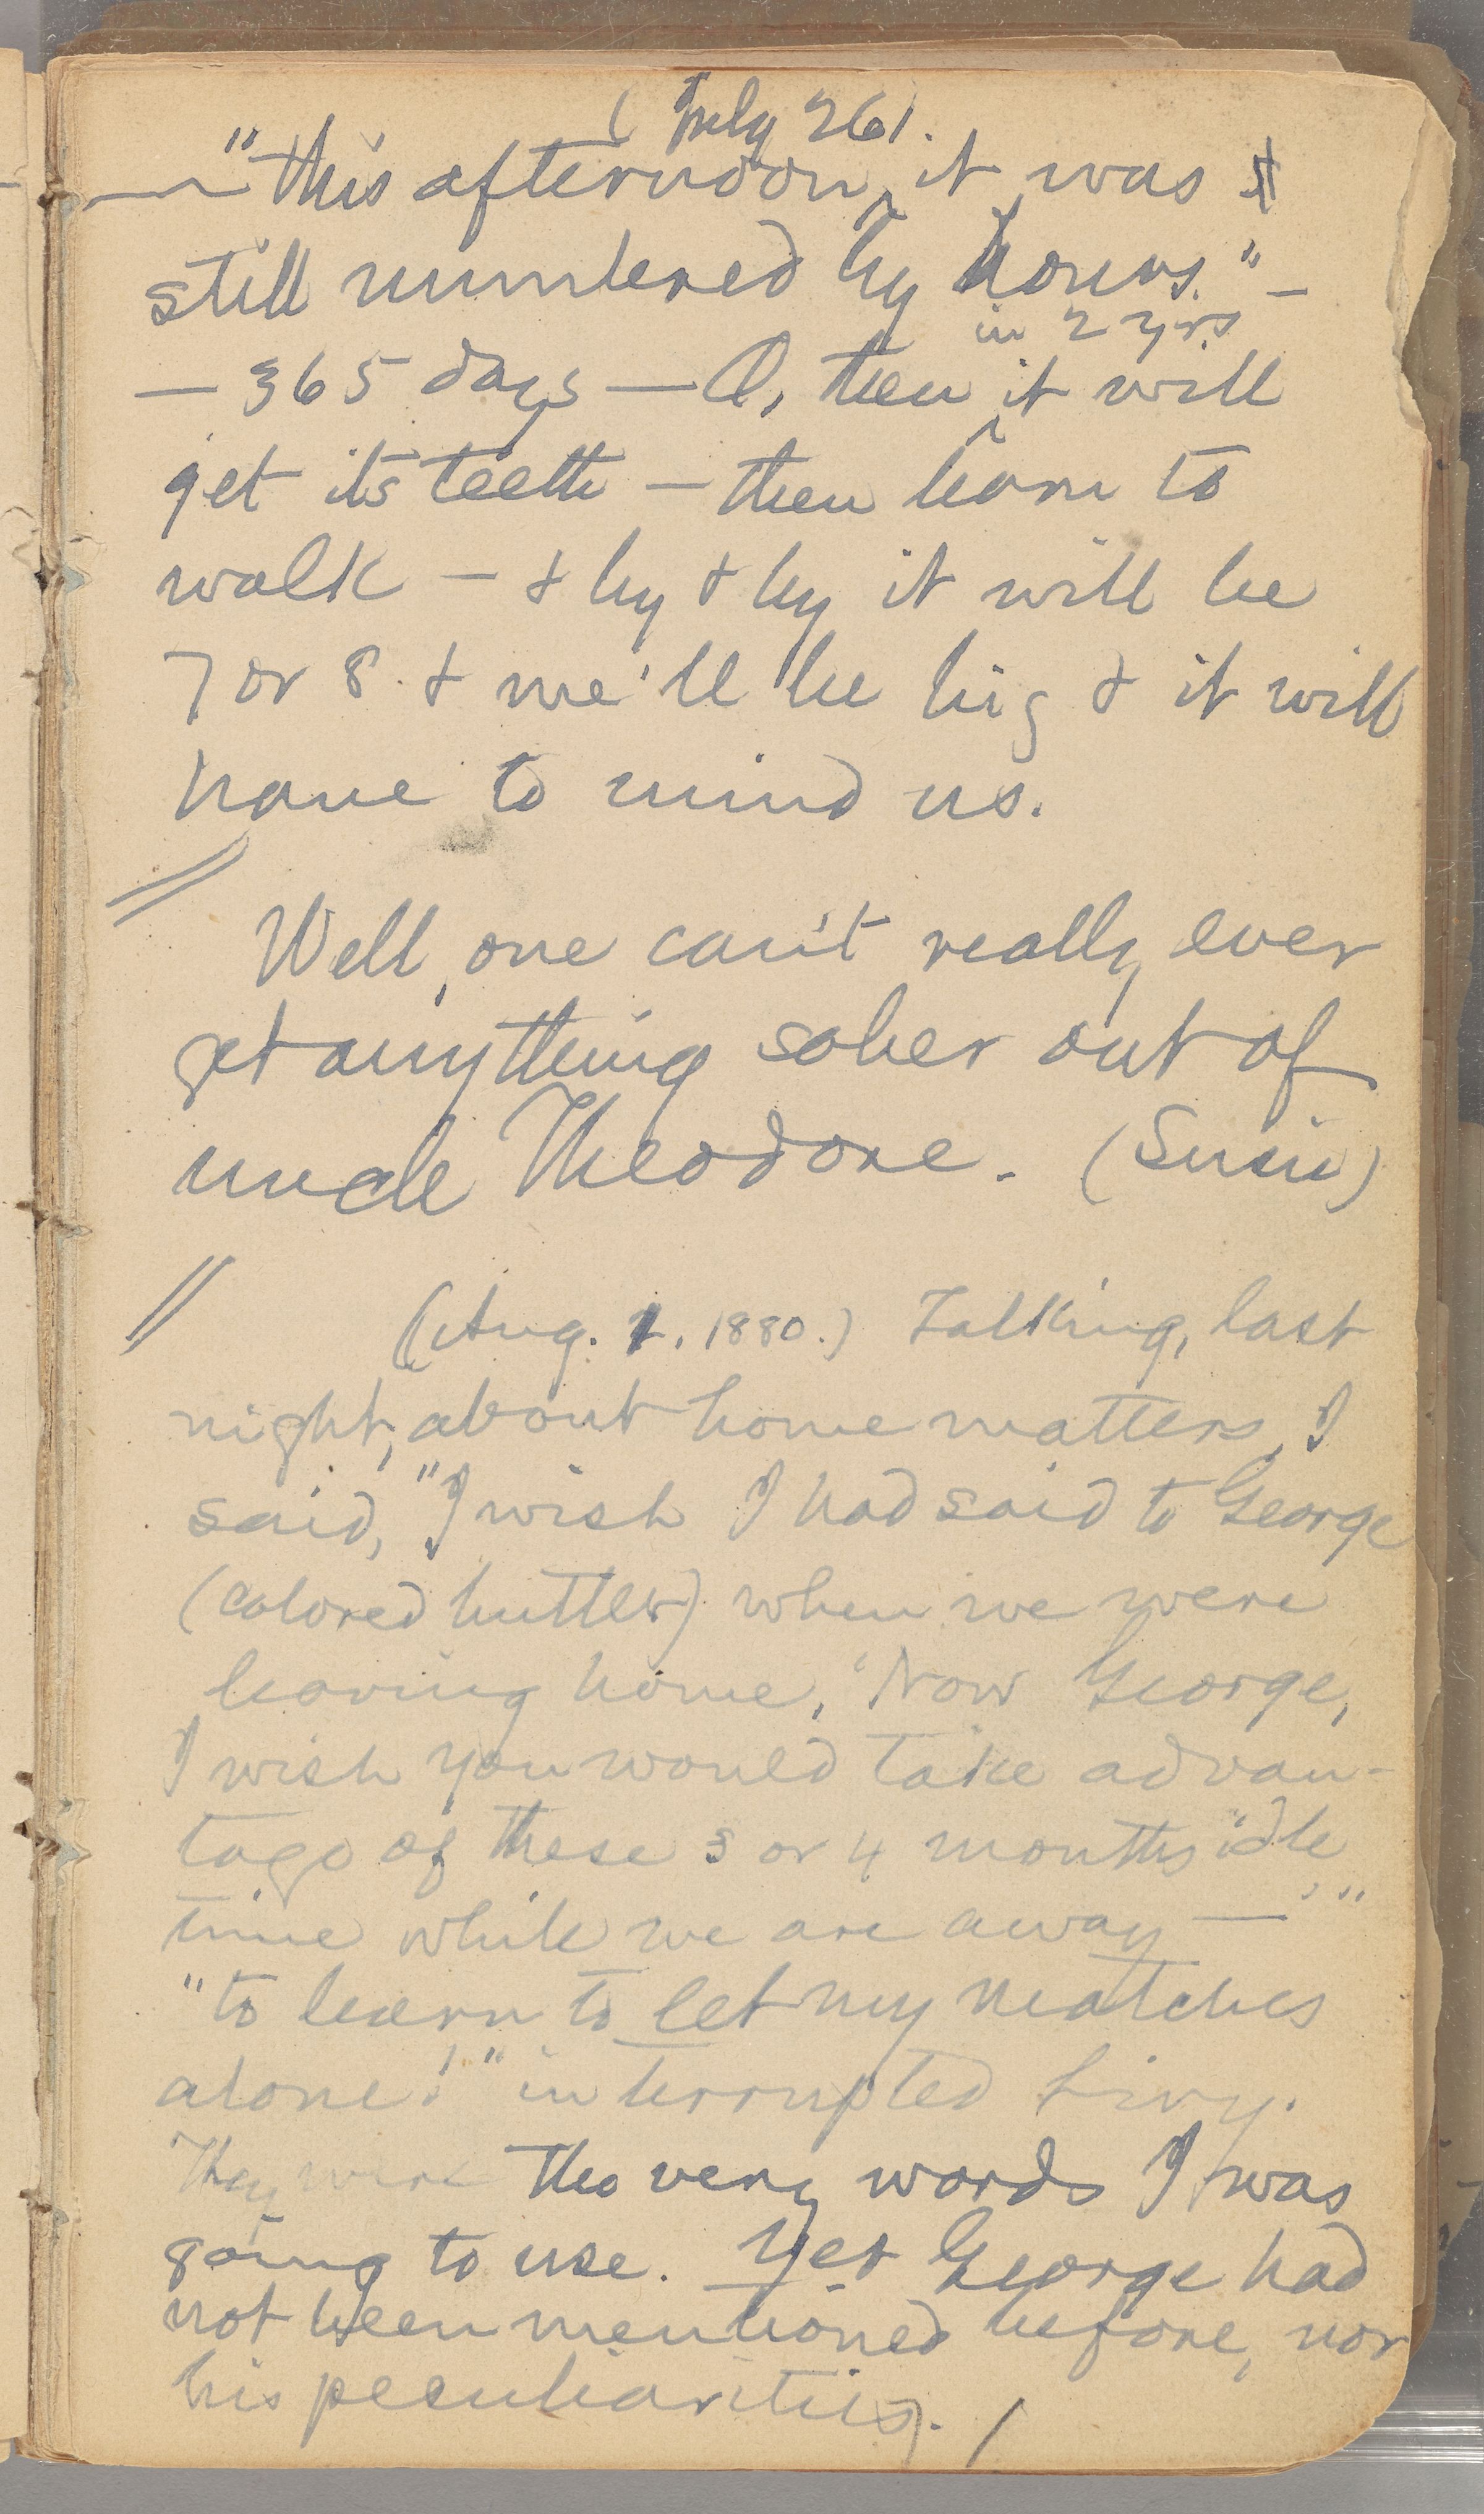 (July 26).
— "this afternoon, it was
still numbered by hours." —
in 2 yrs
— 365 days — O, then it will
get its teeth — then learn to
walk — & by & by it will be
7 or 8. & we'll be big & it will
have to mind us.
Well, one can't really ever
get anything sober out of
uncle Theodore. (Susie)
(Aug. 1, 1880.) Talking, last
night, about home matters, I
said, "I wish I had said to George
(colored buttler) when we were
leaving home, 'Now George,
I wish you would take advan-
tage of these 3 or 4 months idle
time while we are away —' "
"to learn to let my matches
alone!" interrupted Livy.
They were the very words I was
going to use. Yet George had
not been mentioned before, nor
his peculiarities.